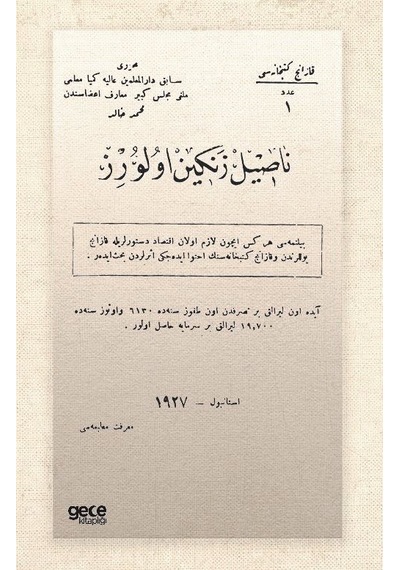 قازانج كتبخانه‌سی
عدد
۱
محرری
سابق دارالمعلمین عالیه كیمیا معلمی
ملی مجلس كبیر معارف اعضاسندن
محمد خالد
ناصیل زنكین اولورز
بیلنمه‌سی هر كس ایچون لازم اولان اقتصاد دستورلریله قازانج
یوللرندن وقازانج كتبخانه‌سنك احتوا ایده‌جكی اثرلردن بحث ایده‌ر.
آیده اون لیرالق بر تصرفدن اون طقوز سنه‌ده ٦١٣٠ واوتوز سنه‌ده
١٩,٧٠٠ لیرالق بر سرمایه حاصل اولور.
استانبول – ١٩٢٧
معرفت مطبعه‌سی
gece
kitaplığı